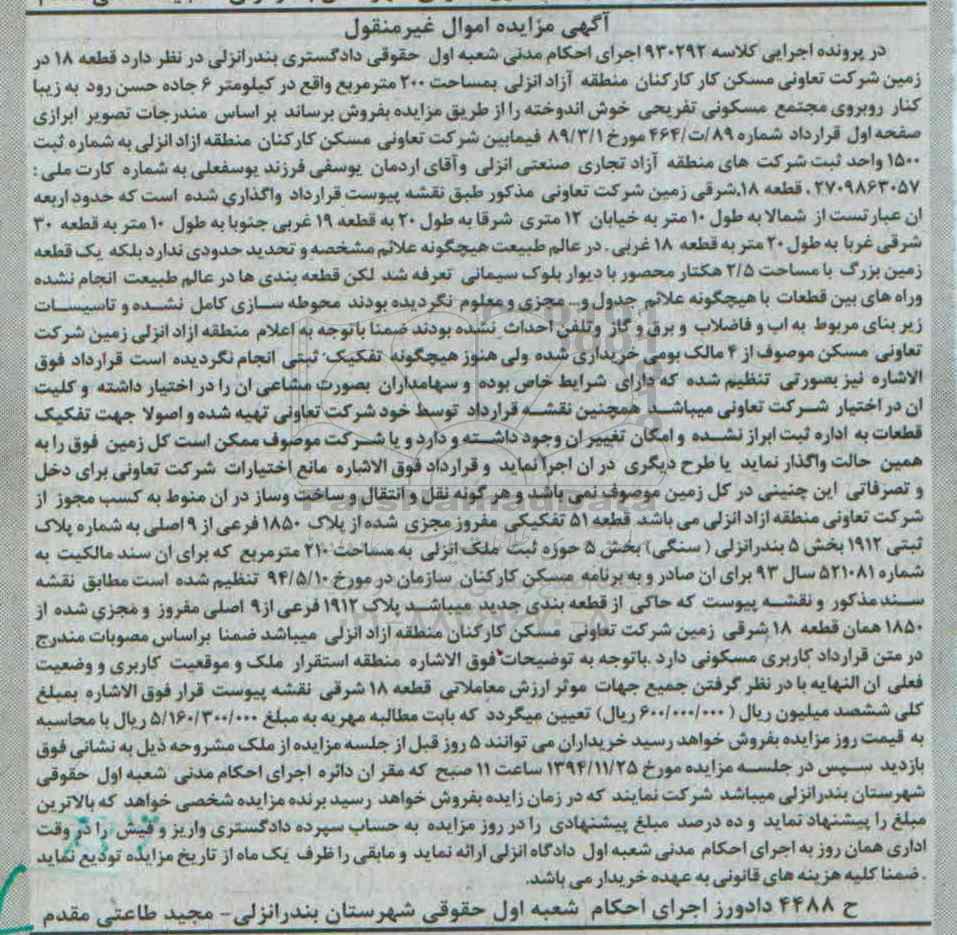 آگهی مزایده اموال غیرمنقول
در پرونده اجرایی کلاسه ۹۳۰۲۹۲ اجرای احکام مدنی شعبه اول حقوقی دادگستری بندرانزلی در نظر دارد قطعه ۱۸ در
زمین شرکت تعاونی مسکن کار کارکنان منطقه آزاد انزلی بمساحت ۲۰۰ مترمربع واقع در کیلومتر ۶ جاده حسن رود به زیبا
کنار روبروی مجتمع مسکونی تفریحی خوش اندوخته را از طریق مزایده بفروش برساند بر اساس مندرجات تصویر ابرازی
صفحه اول قرارداد شماره ۸۹/ت/۴۶۴ مورخ ۸۹/۳/۱ فیمابین شرکت تعاونی مسکن کارکنان منطقه ازاد انزلی به شماره ثبت
۱۵۰۰ واحد ثبت شرکت های منطقه آزاد تجاری صنعتی انزلی وآقای اردمان یوسفی فرزند یوسفعلی به شماره کارت ملی :
۲۷۰۹۸۶۳۰۵۷ . قطعه ۱۸.شرقی زمین شرکت تعاونی مذکور طبق نقشه پیوست قرارداد واگذاری شده است که حدود اربعه
ان عبارتست از شمالا به طول ۱۰ متر به خیابان ۱۲ متری شرقا به طول ۲۰ به قطعه ۱۹ غربی جنوبا به طول ۱۰ متر به قطعه ۳۰
شرقی غربا به طول ۲۰ متر به قطعه ۱۸ غربی . در عالم طبیعت هیچگونه علائم مشخصه و تحدید حدودی ندارد بلکه یک قطعه
زمین بزرگ با مساحت ۲/۵ هکتار محصور با دیوار بلوک سیمانی تعرفه شد لکن قطعه بندی ها در عالم طبیعت انجام نشده
وراه های بین قطعات با هیچگونه علائم جدول و... مجزی و معلوم نگردیده بودند محوطه سازی کامل نشده و تاسیسات
زیر بنای مربوط به اب و فاضلاب و برق و گاز وتلفن احداث نشده بودند ضمنا باتوجه به اعلام منطقه ازاد انزلی زمین شرکت
تعاونی مسکن موصوف از ۴ مالک بومی خریداری شده ولی هنوز هیچگونه تفکیک ثبتی انجام نگردیده است قرارداد فوق
الاشاره نیز بصورتی تنظیم شده که دارای شرایط خاص بوده و سهامداران بصورت مشاعی ان را در اختیار داشته و کلیت
ان در اختیار شرکت تعاونی میباشد همچنین نقشه قرارداد توسط خود شرکت تعاونی تهیه شده و اصولا جهت تفکیک
قطعات به اداره ثبت ابراز نشده و امکان تغییر ان وجود داشته و دارد و یا شرکت موصوف ممکن است کل زمین فوق را به
همین حالت واگذار نماید یا طرح دیگری در ان اجرا نماید و قرارداد فوق الاشاره مانع اختیارات شرکت تعاونی برای دخل
و تصرفاتی این چنینی در کل زمین موصوف نمی باشد و هر گونه نقل و انتقال و ساخت وساز در ان منوط به کسب مجوز از
شرکت تعاونی منطقه ازاد انزلی می باشد قطعه ۵۱ تفکیکی مفروز مجزی شده از پلاک ۱۸۵۰ فرعی از ۹ اصلی به شماره پلاک
ثبتی ۱۹۱۲ بخش ۵ بندرانزلی ( سنگی) بخش ۵ حوزه ثبت ملک انزلی به مساحت ۲۱۰ مترمربع که برای ان سند مالکیت به
شماره ۵۲۱۰۸۱ سال ۹۳ برای ان صادر و به برنامه مسکن کارکنان سازمان در مورخ ۹۴/۵/۱۰ تنظیم شده است مطابق نقشه
سند مذکور و نقشه پیوست که حاکی از قطعه بندی جدید میباشد پلاک ۱۹۱۲ فرعی از ۹ اصلی مفروز و مجزی شده از
۱۸۵۰ همان قطعه ۱۸ شرقی زمین شرکت تعاونی مسکن کارکنان منطقه ازاد انزلی میباشد ضمنا براساس مصوبات مندرج
در متن قرارداد کاربری مسکونی دارد .باتوجه به توضیحات فوق الاشاره منطقه استقرار ملک و موقعیت کاربری و وضعیت
فعلی ان النهایه با در نظر گرفتن جمیع جهات موثر ارزش معاملاتی قطعه ۱۸ شرقی نقشه پیوست قرار فوق الاشاره بمبلغ
کلی ششصد میلیون ریال ( ۶۰۰/۰۰۰/۰۰۰ ریال) تعیین میگردد که بابت مطالبه مهریه به مبلغ ۵/۱۶۰/۳۰۰/۰۰۰ ریال با محاسبه
به قیمت روز مزایده بفروش خواهد رسید خریداران می توانند ۵ روز قبل از جلسه مزایده از ملک مشروحه ذیل به نشانی فوق
بازدید سپس در جلسه مزایده مورخ ۱۳۹۴/۱۱/۲۵ ساعت ۱۱ صبح که مقر ان دائره اجرای احکام مدنی شعبه اول حقوقی
شهرستان بندرانزلی میباشد شرکت نمایند که در زمان زایده بفروش خواهد رسید برنده مزایده شخصی خواهد که بالاترین
مبلغ را پیشنهاد نماید و ده درصد مبلغ پیشنهادی را در روز مزایده به حساب سپرده دادگستری واریز و فیش را در وقت
اداری همان روز به اجرای احکام مدنی شعبه اول دادگاه انزلی ارائه نماید و مابقی را ظرف یک ماه از تاریخ مزایده تودیع نماید
. ضمنا کلیه هزینه های قانونی به عهده خریدار می باشد.
ح ۴۴۸۸ دادورز اجرای احکام شعبه اول حقوقی شهرستان بندرانزلی- مجید طاعتی مقدم